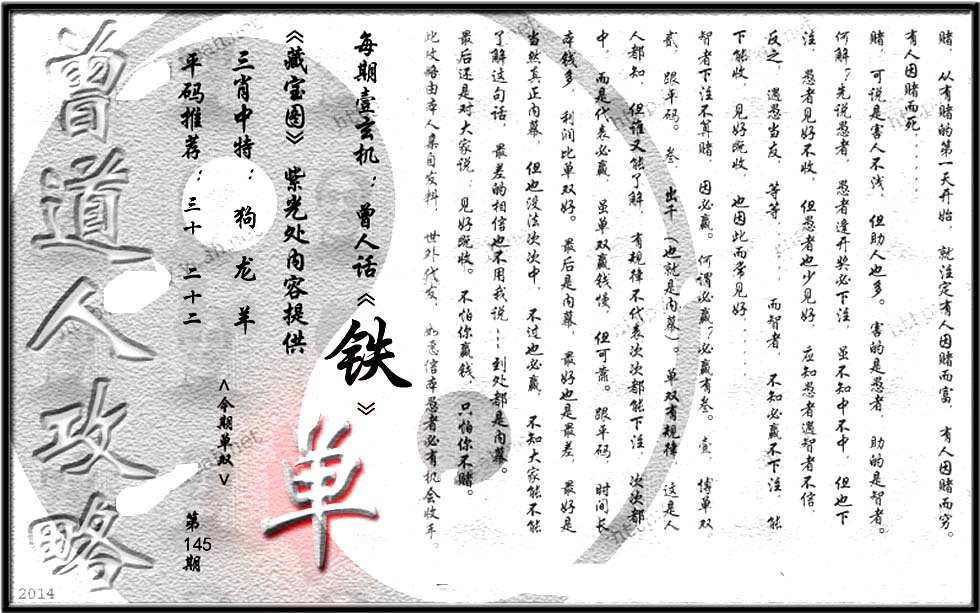 赌，从有赌的第一天开始，就注定有人因赌而富，有人因赌而穷。
有人因赌而死．．．．．．
赌，可说是害人不浅，但助人也多。害的是愚者，助的是智者。
何解？先说愚者，愚者逢开奖必下注，虽不知中不中，但也下
注，愚者见好不收，但愚者也少见好，应知愚者遇智者不信，
反之，遇愚当友，等等．．．．．．而智者，不知必赢不下注，能
下能收，见好既收，也因此而常见好．．．．．．
智者下注不算赌，因必赢。何谓必赢？必赢有叁。壹，博单双，
贰，跟平码。叁，出千（也就是内幕）。单双有规律，这是人
人都知，但谁又能了解，有规律不代表次次都能下注，次次都
中，而是代表必赢，虽单双赢钱慢，但可靠。跟平码，时间长，
本钱多，利润比单双好。最后是内幕，最好也是最差，最好是
当然真正内幕，但也没法次次中，不过也必赢，不知大家能不能
了解这句话，最差的相信也不用我说——到处都是内幕。
最后还是对大家说：见好既收。不怕你赢钱，只怕你不赌。
此攻略由本人亲自发料，世外代友，如愿信本愚者必有机会收手。
每期壹玄机：曾人话《铁》
《藏宝图》紫光处内容提供
三肖中特：狗龙羊
平码推荐：三十 二十二
<今期单双>
单
第145期
曾道人攻略
2014